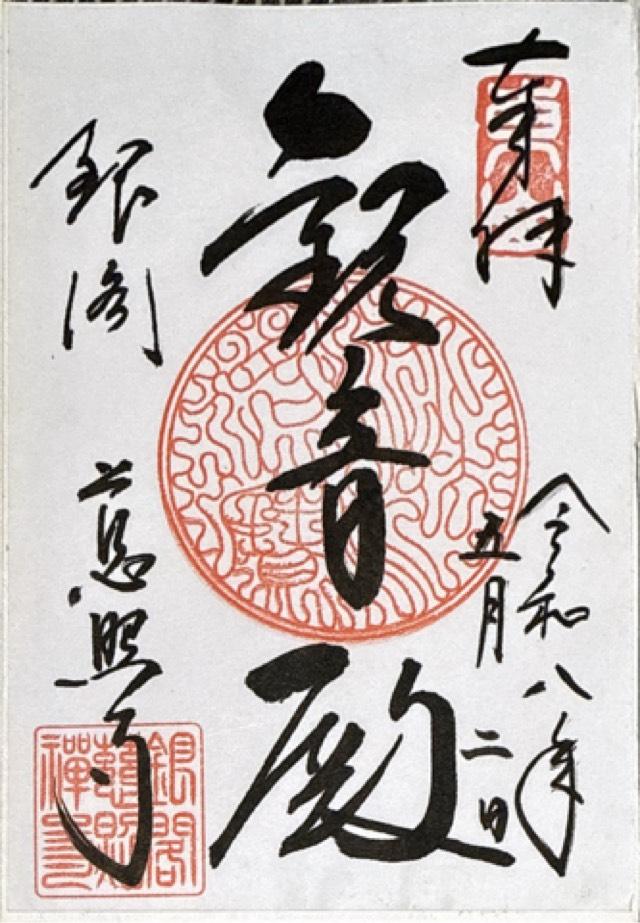 奉拝
令和八年
五月二日
観音殿
銀閣
慈照寺
銀閣
慈照
禅寺